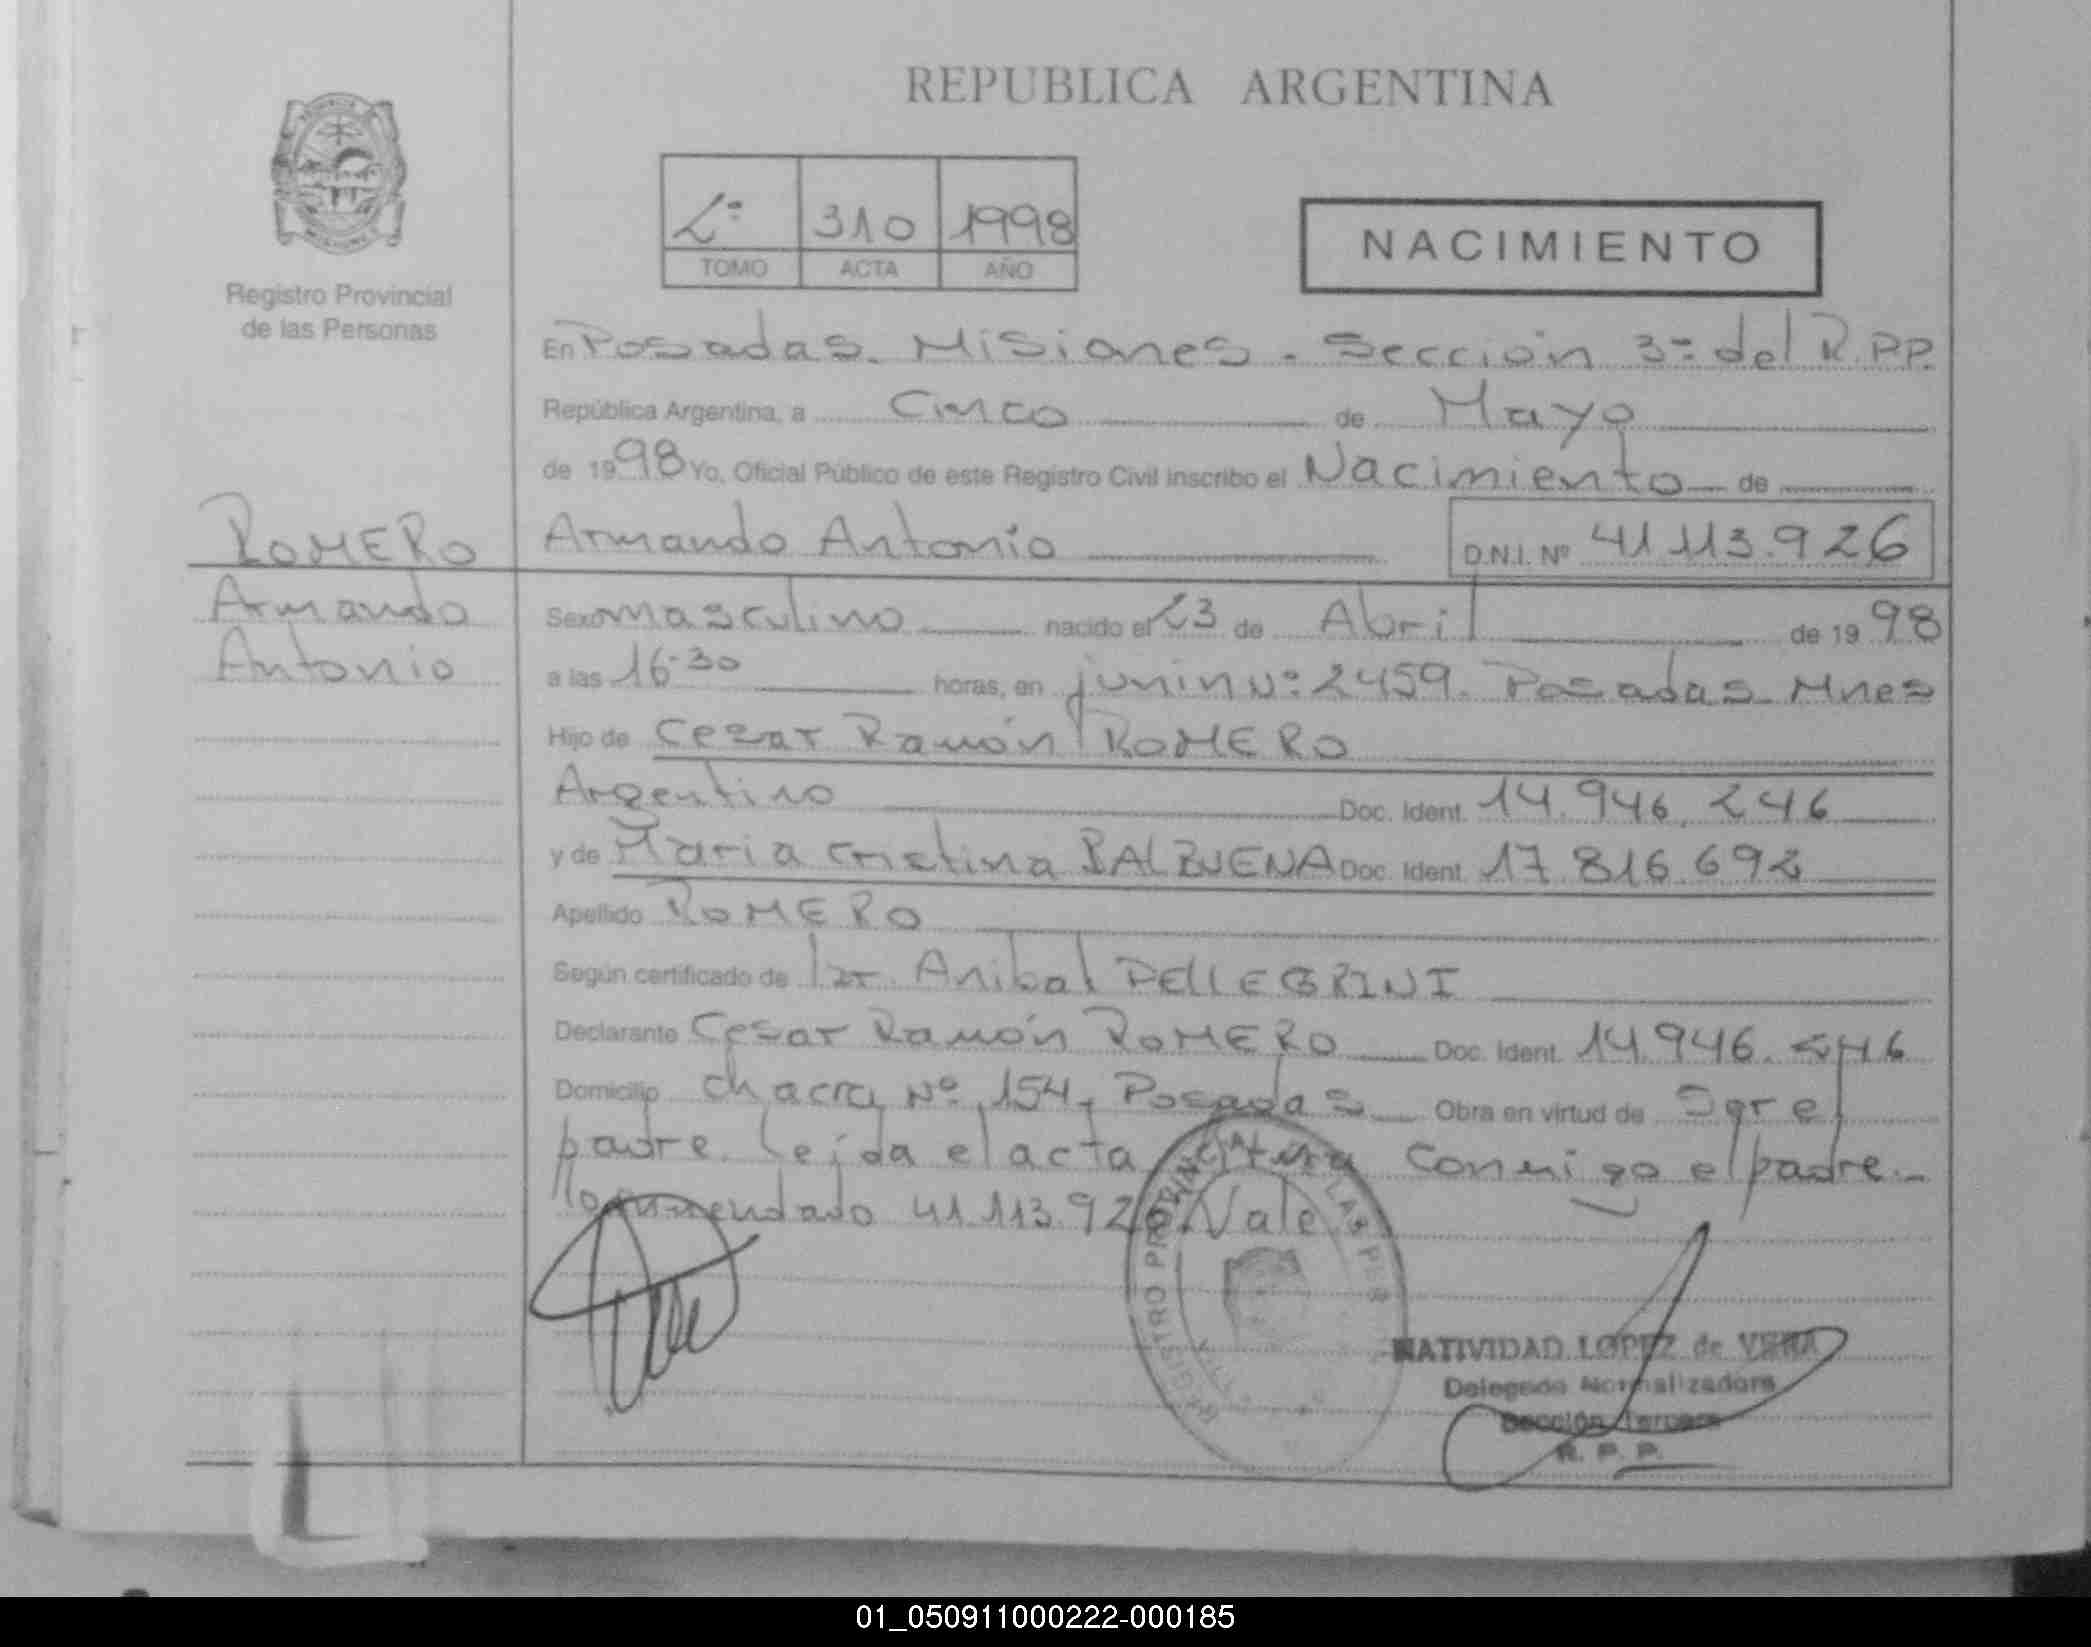 REPUBLICA ARGENTINA
2º 310 1998
TOMO ACTA AÑO
NACIMIENTO
Registro Provincial
de las Personas
En Posadas. Misiones. Sección 3º del R.P.P.
República Argentina, a Cinco de Mayo
de 1998 Yo, Oficial Público de este Registro Civil inscribo el Nacimiento de
ROMERO
Armando
Antonio
Armando Antonio D.N.I. Nº 41.113.926
Sexo masculino nacido el 23 de Abril de 1998
a las 16·30 horas, en junin Nº 2459. Posadas Mnes
Hijo de Cezar Ramón ROMERO
Argentino Doc. Ident. 14.946.246
y de Maria Cristina BALBUENA Doc. Ident. 17.816.692
Apellido ROMERO
Según certificado de Anibal PELLEGRINI
Declarante Cesar Ramón ROMERO Doc. Ident. 14.946.246
Domicilio chacra Nº 154, Posadas Obra en virtud de Ser el
padre. Leida el acta firma Conmigo el padre.
Lo enmendado 41.113.926 Vale
REGISTRO PROVINCIAL LAS PER
NATIVIDAD LOPEZ de VERA
Delegada Normalizadora
Sección Tercera
R. P. P.
01_050911000222-000185